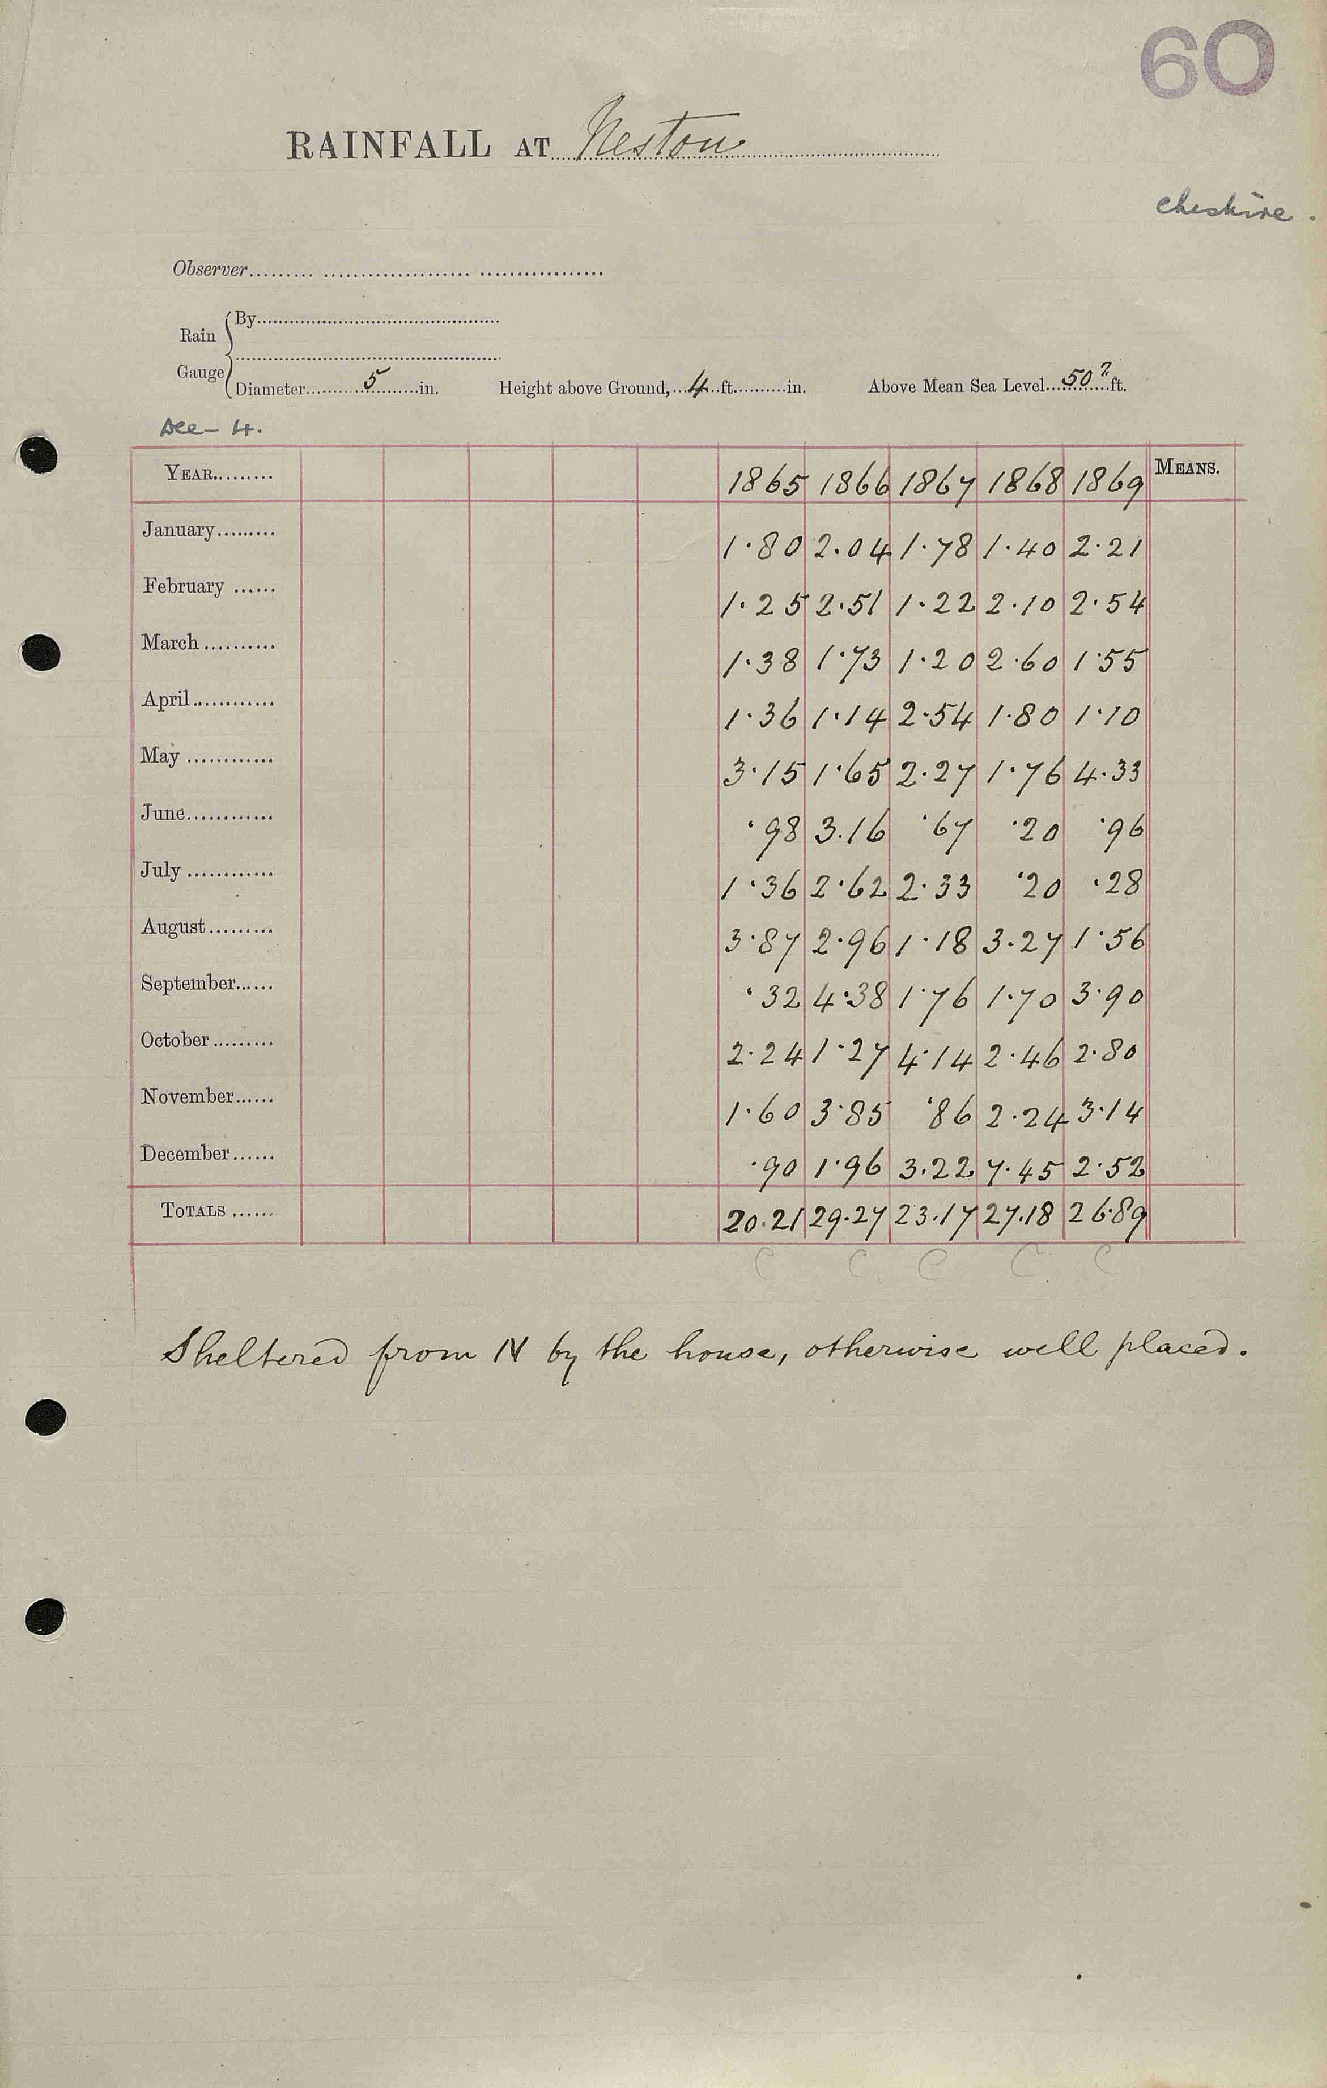 60
RAINFALL AT Neston
Cheshire.
Observer
Rain Gauge
By
Diameter 5 in. Height above Ground, 4 ft. in. Above Mean Sea Level 50? ft.
Dec - 4.
YEAR 1865 1866 1867 1868 1869 MEANS.
January 1.80 2.04 1.78 1.40 2.21
February 1.25 2.51 1.22 2.10 2.54
March 1.38 1.73 1.20 2.60 1.55
April 1.36 1.14 2.54 1.80 1.10
May 3.15 1.65 2.27 1.76 4.33
June .98 3.16 .67 .20 .96
July 1.36 2.62 2.33 .20 .28
August 3.87 2.96 1.18 3.27 1.56
September .32 4.38 1.76 1.70 3.90
October 2.24 1.27 4.14 2.46 2.80
November 1.60 3.85 .86 2.24 3.14
December .90 1.96 3.22 7.45 2.52
TOTALS 20.21 29.27 23.17 27.18 26.89
C C C C C
Sheltered from N by the house, otherwise well placed.